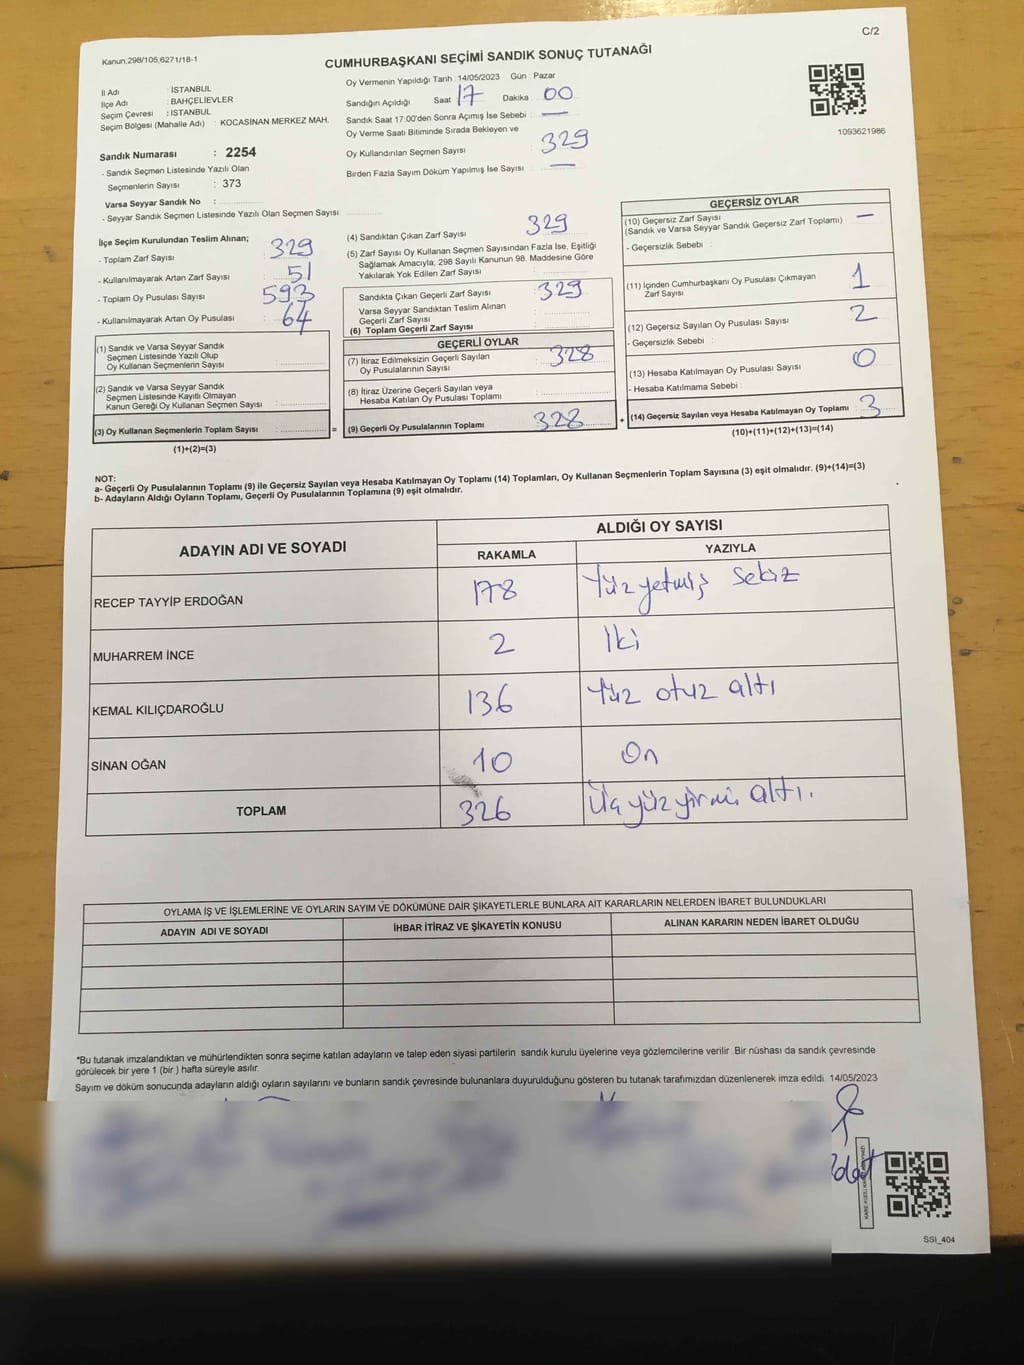 C/2
Kanun:298/105;6271/18-1
CUMHURBAŞKANI SEÇİMİ SANDIK SONUÇ TUTANAĞI
İl Adı : İSTANBUL
İlçe Adı : BAHÇELİEVLER
Seçim Çevresi : İSTANBUL
Seçim Bölgesi (Mahalle Adı) : KOCASİNAN MERKEZ MAH.
Sandık Numarası : 2254
- Sandık Seçmen Listesinde Yazılı Olan
Seçmenlerin Sayısı : 373
Varsa Seyyar Sandık No :
- Seyyar Sandık Seçmen Listesinde Yazılı Olan Seçmen Sayısı:
Oy Vermenin Yapıldığı Tarih :14/05/2023 Gün : Pazar
Sandığın Açıldığı Saat 17 Dakika : 00
Sandık Saat 17:00'den Sonra Açımış İse Sebebi : —
Oy Verme Saati Bitiminde Sırada Bekleyen ve
Oy Kullandırılan Seçmen Sayısı : 329
Birden Fazla Sayım Döküm Yapılmış İse Sayısı : —
1093621986
İlçe Seçim Kurulundan Teslim Alınan;
- Toplam Zarf Sayısı : 329
- Kullanılmayarak Artan Zarf Sayısı : 51
- Toplam Oy Pusulası Sayısı : 593
- Kullanılmayarak Artan Oy Pusulası : 64
(1) Sandık ve Varsa Seyyar Sandık
Seçmen Listesinde Yazılı Olup
Oy Kullanan Seçmenlerin Sayısı :
(2) Sandık ve Varsa Seyyar Sandık
Seçmen Listesinde Kayıtlı Olmayan
Kanun Gereği Oy Kullanan Seçmen Sayısı :
(3) Oy Kullanan Seçmenlerin Toplam Sayısı :
(1)+(2)=(3)
(4) Sandıktan Çıkan Zarf Sayısı : 329
(5) Zarf Sayısı Oy Kullanan Seçmen Sayısından Fazla İse, Eşitliği
Sağlamak Amacıyla; 298 Sayılı Kanunun 98. Maddesine Göre
Yakılarak Yok Edilen Zarf Sayısı :
Sandıkta Çıkan Geçerli Zarf Sayısı : 329
Varsa Seyyar Sandıktan Teslim Alınan
Geçerli Zarf Sayısı :
(6) Toplam Geçerli Zarf Sayısı :
GEÇERLİ OYLAR
(7) İtiraz Edilmeksizin Geçerli Sayılan
Oy Pusulalarının Sayısı : 328
(8) İtiraz Üzerine Geçerli Sayılan veya
Hesaba Katılan Oy Pusulası Toplamı :
= (9) Geçerli Oy Pusulalarının Toplamı : 328
GEÇERSİZ OYLAR
(10) Geçersiz Zarf Sayısı : —
(Sandık ve Varsa Seyyar Sandık Geçersiz Zarf Toplamı)
- Geçersizlik Sebebi :
(11) İçinden Cumhurbaşkanı Oy Pusulası Çıkmayan
Zarf Sayısı : 1
(12) Geçersiz Sayılan Oy Pusulası Sayısı : 2
- Geçersizlik Sebebi :
(13) Hesaba Katılmayan Oy Pusulası Sayısı : 0
- Hesaba Katılmama Sebebi :
+ (14) Geçersiz Sayılan veya Hesaba Katılmayan Oy Toplamı : 3
(10)+(11)+(12)+(13)=(14)
NOT:
a- Geçerli Oy Pusulalarının Toplamı (9) ile Geçersiz Sayılan veya Hesaba Katılmayan Oy Toplamı (14) Toplamları, Oy Kullanan Seçmenlerin Toplam Sayısına (3) eşit olmalıdır. (9)+(14)=(3)
b- Adayların Aldığı Oyların Toplamı, Geçerli Oy Pusulalarının Toplamına (9) eşit olmalıdır.
ADAYIN ADI VE SOYADI
ALDIĞI OY SAYISI
RAKAMLA YAZIYLA
RECEP TAYYİP ERDOĞAN 178 Yüz yetmiş sekiz
MUHARREM İNCE 2 İki
KEMAL KILIÇDAROĞLU 136 Yüz otuz altı
SİNAN OĞAN 10 On
TOPLAM 326 Üç yüz yirmi altı.
OYLAMA İŞ VE İŞLEMLERİNE VE OYLARIN SAYIM VE DÖKÜMÜNE DAİR ŞİKAYETLERLE BUNLARA AİT KARARLARIN NELERDEN İBARET BULUNDUKLARI
ADAYIN ADI VE SOYADI İHBAR İTİRAZ VE ŞİKAYETİN KONUSU ALINAN KARARIN NEDEN İBARET OLDUĞU
*Bu tutanak imzalandıktan ve mühürlendikten sonra seçime katılan adayların ve talep eden siyasi partilerin sandık kurulu üyelerine veya gözlemcilerine verilir .Bir nüshası da sandık çevresinde
görülecek bir yere 1 (bir ) hafta süreyle asılır.
Sayım ve döküm sonucunda adayların aldığı oyların sayılarını ve bunların sandık çevresinde bulunanlara duyurulduğunu gösteren bu tutanak tarafımızdan düzenlenerek imza edildi. 14/05/2023
SSI_404